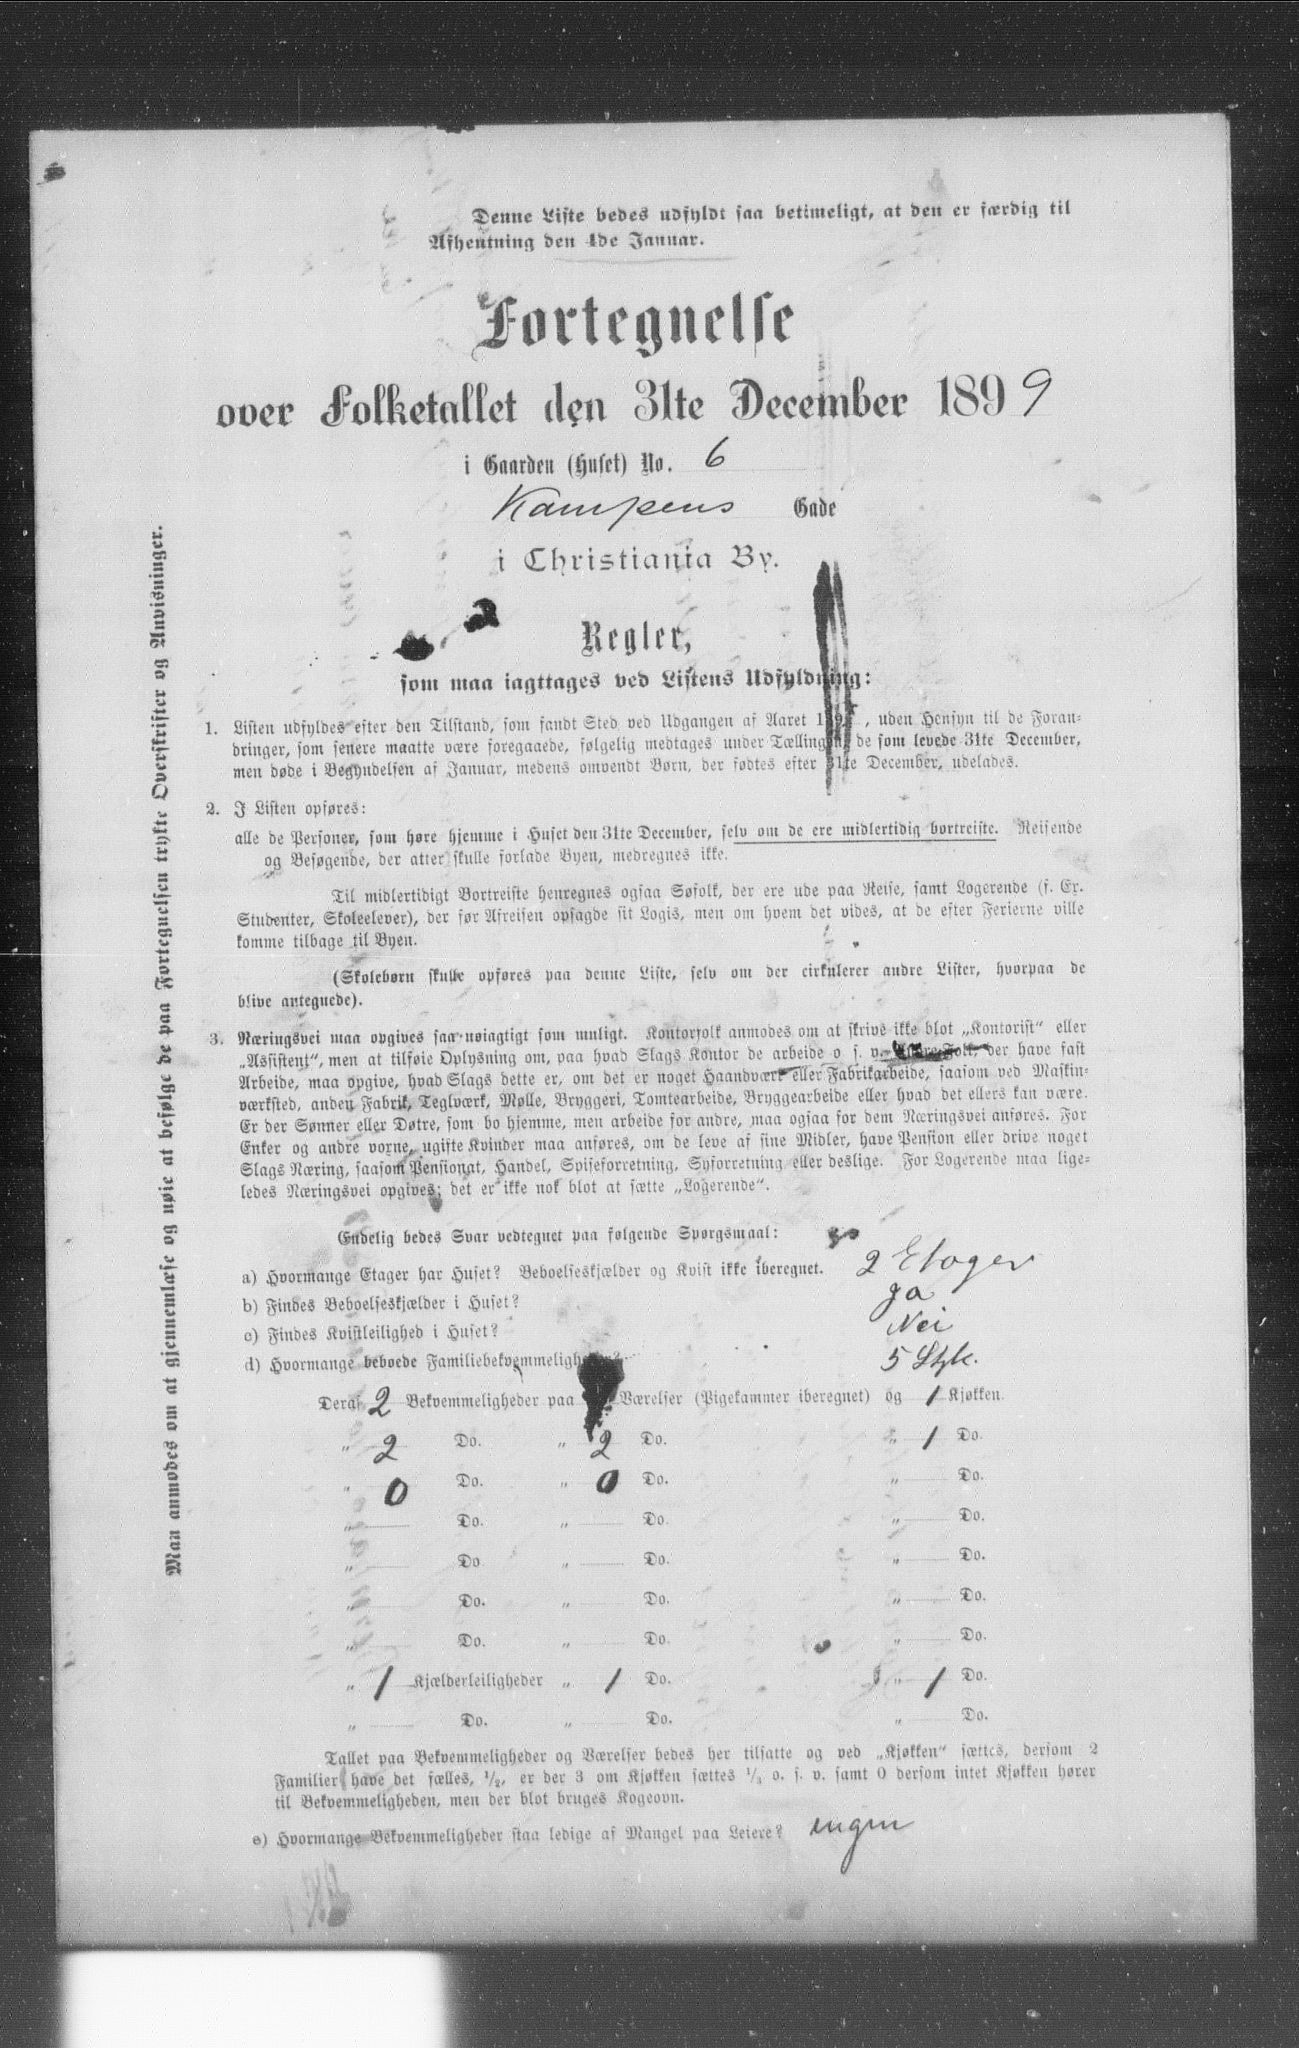 Denne Liste bedes udfyldt saa betimeligt, at den er færdig til
Afhentning den 4de Januar.
Fortegnelse
over Folketallet den 31te December 1899
i Gaarden (Huset) No. 6
Kampens Gade
i Christiania By.
Regler,
som maa iagttages ved Listens Udfyldning:
1. Listen udfyldes efter den Tilstand, som fandt Sted ved Udgangen af Aaret 189 , uden Hensyn til de Foran-
dringer, som senere maatte være foregaaede, følgelig medtages under Tællingen de som levede 31te December,
men døde i Begyndelsen af Januar, medens omvendt Børn, der fødtes efter 31te December, udelades.
2. I Listen opføres:
alle de Personer, som høre hjemme i Huset den 31te December, selv om de ere midlertidig bortreiste. Reisende
og Besøgende, der atter skulle forlade Byen, medregnes ikke.
Til midlertidigt Bortreiste henregnes ogsaa Søfolk, der ere ude paa Reise, samt Logerende (f. Ex.
Studenter, Skoleelever), der før Afreisen opsagde sit Logis, men om hvem det vides, at de efter Ferierne ville
komme tilbage til Byen.
(Skolebørn skulle opføres paa denne Liste, selv om der cirkulerer andre Lister, hvorpaa de
blive antegnede).
3. Næringsvei maa opgives saa nøiagtigt som muligt. Kontorfolk anmodes om at skrive ikke blot „Kontorist“ eller
„Assistent“, men at tilføie Oplysning om, paa hvad Slags Kontor de arbeide o s. v. Andre Folk, der have fast
Arbeide, maa opgive, hvad Slags dette er, om det er noget Haandværk eller Fabrikarbeide, saasom ved Maskin-
værksted, anden Fabrik, Teglværk, Mølle, Bryggeri, Tomtearbeide, Bryggearbeide eller hvad det ellers kan være.
Er der Sønner eller Døtre, som bo hjemme, men arbeide for andre, maa ogsaa for dem Næringsvei anføres. For
Enker og andre voxne, ugifte Kvinder maa anføres, om de leve af sine Midler, have Pension eller drive noget
Slags Næring, saasom Pensionat, Handel, Spiseforretning, Syforretning eller deslige. For Logerende maa lige-
ledes Næringsvei opgives; det er ikke nok blot at sætte „Logerende“.
Endelig bedes Svar vedtegnet paa følgende Spørgsmaal:
a) Hvormange Etager har Huset? Beboelseskjælder og Kvist ikke iberegnet. 2 Etager
b) Findes Beboelseskjælder i Huset? ja
c) Findes Kvistleilighed i Huset? Nei
d) Hvormange beboede Familiebekvemmeligheder? 5 Stk.
Deraf 2 Bekvemmeligheder paa Værelser (Pigekammer iberegnet) og 1 Kjøkken.
„ 2 Do. „ 2 Do. „ 1 Do.
„ 0 Do. „ 0 Do. „ Do.
„ Do. „ Do. „ Do.
„ Do. „ Do. „ Do.
„ Do. „ Do. „ Do.
„ Do. „ Do. „ Do.
„ 1 Kjælderleiligheder „ 1 Do. „ 1 Do.
„ Do. „ Do. „ Do.
Tallet paa Bekvemmeligheder og Værelser bedes her tilsatte og ved „Kjøkken“ sættes, dersom 2
Familier have det fælles, 1/2, er der 3 om Kjøkken sættes 1/3 o. s. v. samt 0 dersom intet Kjøkken hører
til Bekvemmeligheden, men der blot bruges Kogeovn.
e) Hvormange Bekvemmeligheder staa ledige af Mangel paa Leiere? ingen
Man anmodes om at gjennemlæse og nøie at befølge de paa Fortegnelsen trykte Overskrifter og Anvisninger.